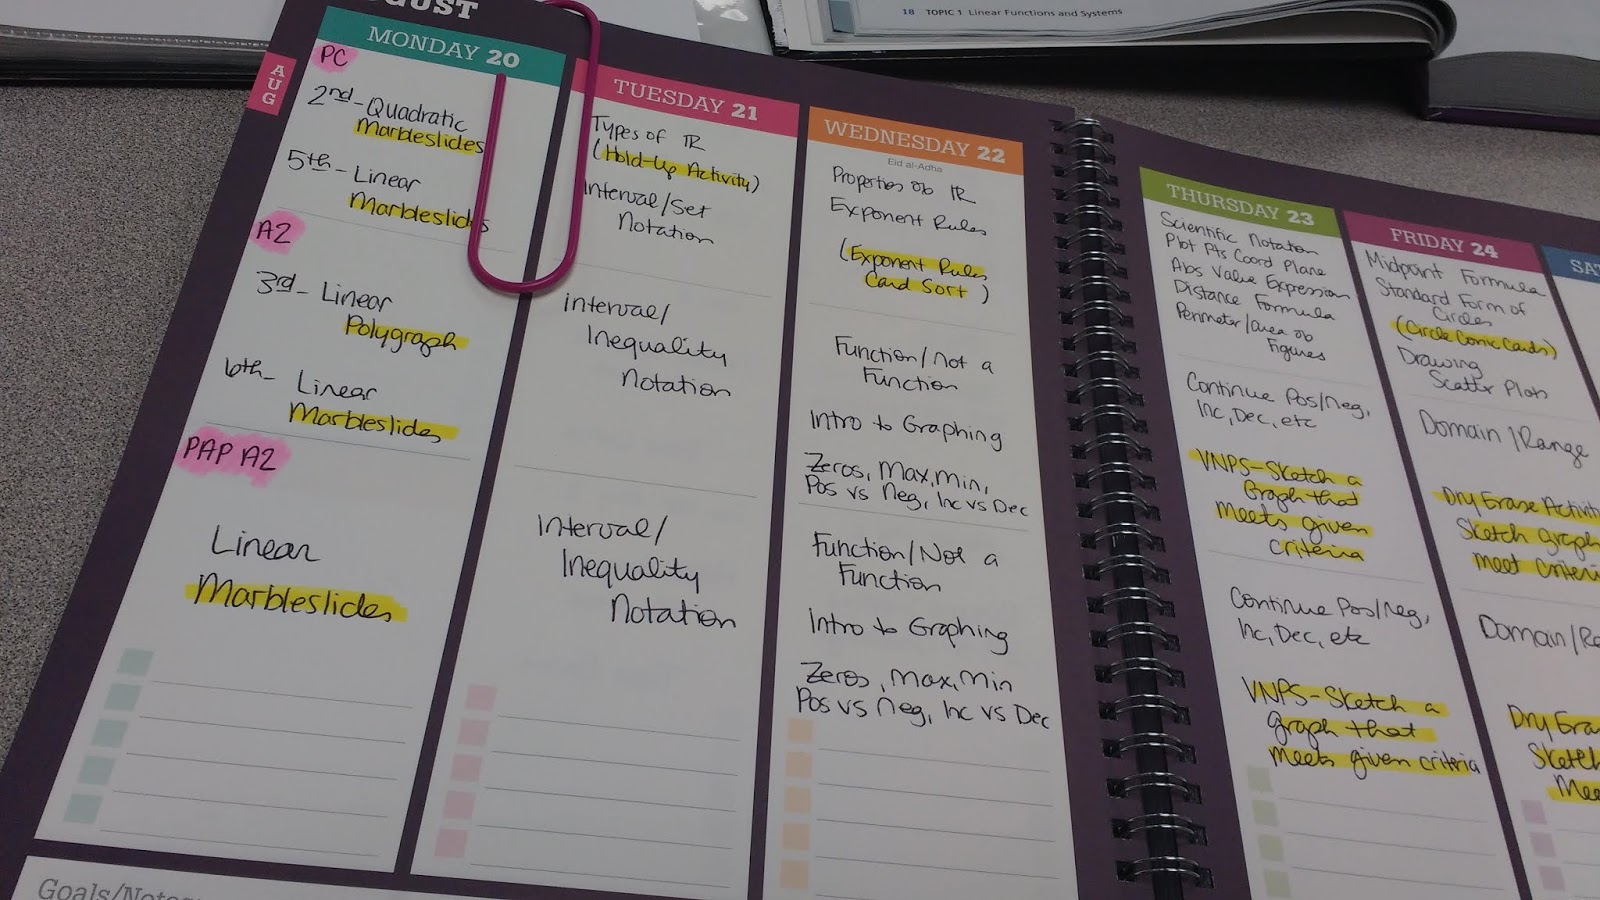 18 TOPIC 1 Linear Functions and Systems
GUST
AUG
MONDAY 20
PC
2nd - Quadratic
Marbleslides
5th - Linear
Marbleslides
A2
3rd - Linear
Polygraph
6th - Linear
Marbleslides
PAP A2
Linear
Marbleslides
TUESDAY 21
Types of IR
(Hold-Up Activity)
Interval/Set
Notation
Interval/
Inequality
Notation
Interval/
Inequality
Notation
WEDNESDAY 22
Eid al-Adha
Properties of IR
Exponent Rules
(Exponent Rules
Card Sort)
Function/Not a
Function
Intro to Graphing
Zeros, Max, Min,
Pos vs Neg, Inc vs Dec
Function/Not a
Function
Intro to Graphing
Zeros, Max, Min
Pos vs Neg, Inc vs Dec
THURSDAY 23
Scientific Notation
Plot Pts Coord Plane
Abs Value Expression
Distance Formula
Perimeter/Area of
Figures
Continue Pos/Neg,
Inc, Dec, etc
VNPS - Sketch a
Graph that
meets given
criteria
Continue Pos/Neg,
Inc, Dec, etc
VNPS - Sketch a
graph that
meets given criteria
FRIDAY 24
Midpoint Formula
Standard Form of
Circles
(Circle Conic Cards)
Drawing
Scatter Plots
Domain/Range
Dry Erase Activit
Sketch graph
meet criteri
Domain/Ra
Dry Era
Sketch
Mee
SAT
Goals/Notes